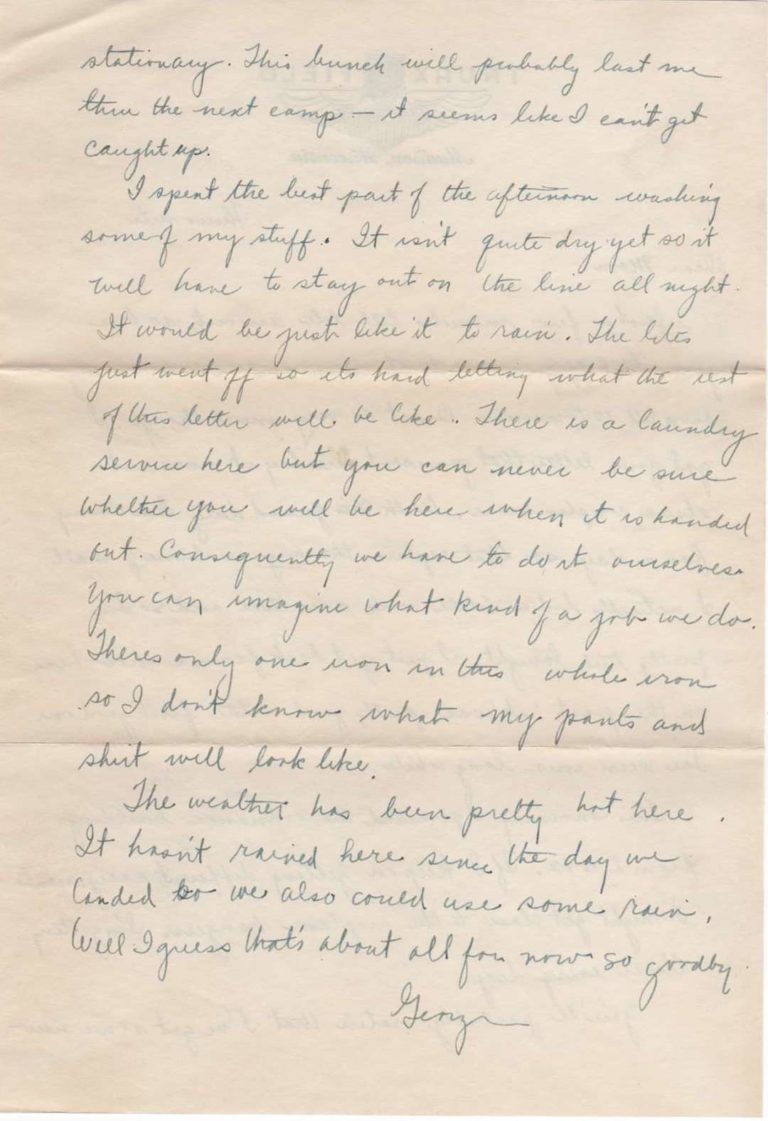 stationary. This bunch will probably last me
thru the next camp – it seems like I can't get
caught up.
I spent the best part of the afternoon washing
some of my stuff. It isn't quite dry yet so it
will have to stay out on the line all night.
It would be just like it to rain. The lites
just went off so its hard telling what the rest
of this letter will be like. There is a laundry
service here but you can never be sure
whether you will be here when it is handed
out. Consequently we have to do it ourselves.
You can imagine what kind of a job we do.
Theres only one iron in this whole iron
so I don't know what my pants and
shirt will look like.
The weather has been pretty hot here.
It hasn't rained here since the day we
landed so we also could use some rain.
Well I guess that's about all for now so goodby.
George